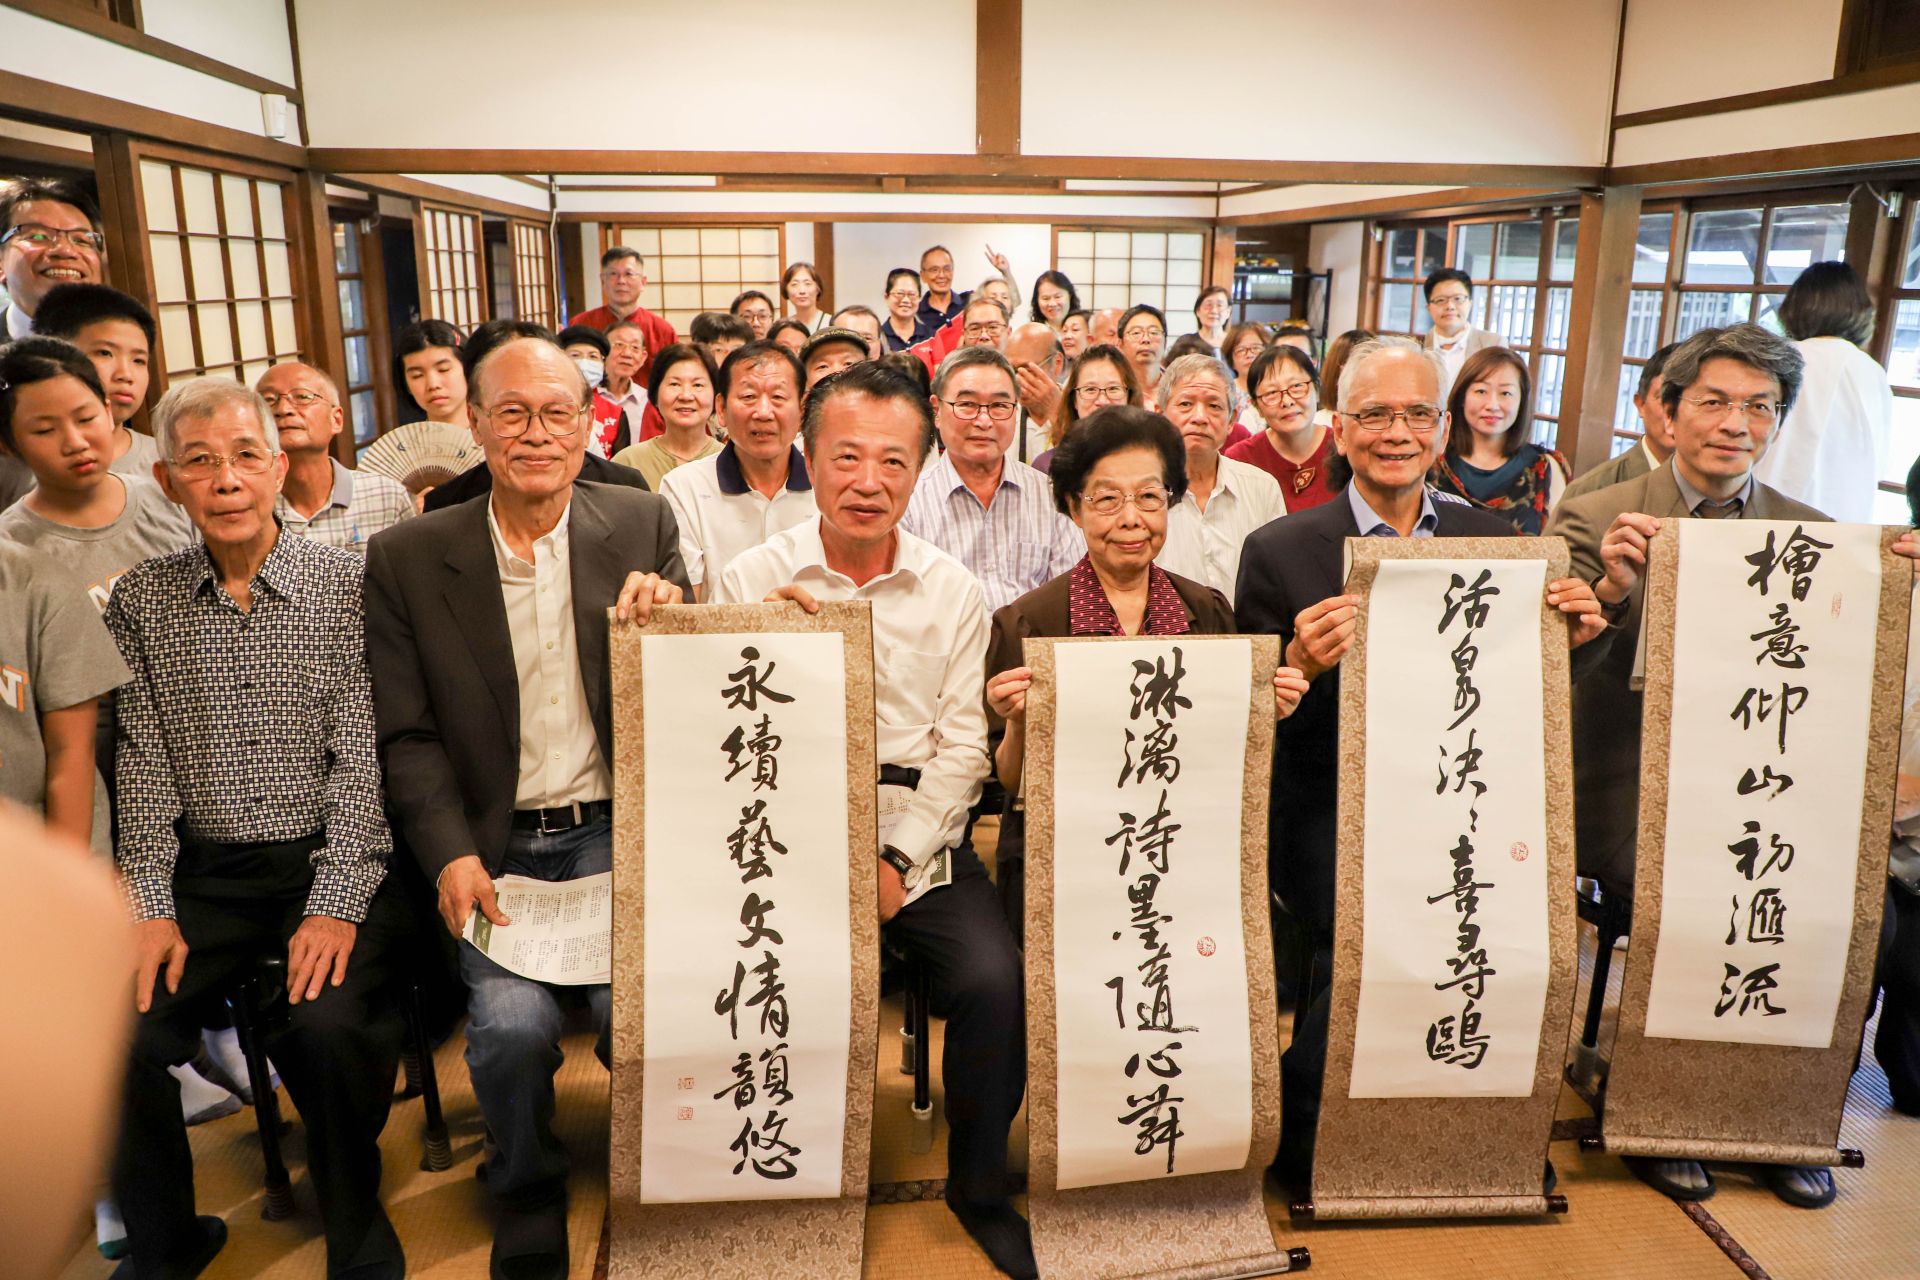 檜意仰山初滙流
活泉決〻喜尋鷗
淋漓詩墨隨心舞
永續藝文情韻悠